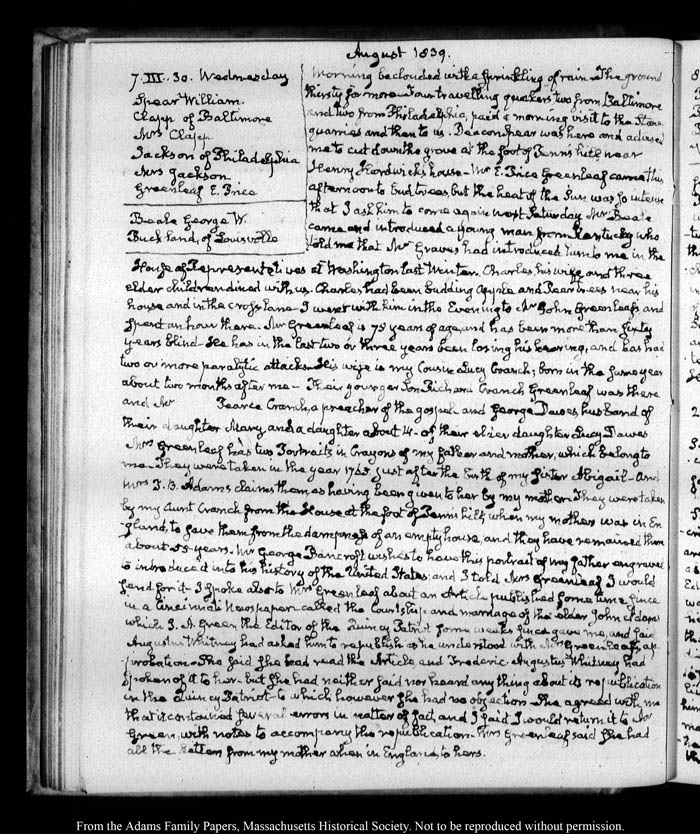 August 1839.
7. III. 30. Wednesday
Spear William.
Clapp of Baltimore
Mrs Clapp
Jackson of Philadelphia
Mrs Jackson
Greenleaf E. Price
Beale George W.
Buckland, of Louisville
Morning beclouded with a sprinkling of rain The ground
thirsty for more. Four travelling quakers two from Baltimore
and two from Philadelphia, paid a morning visit to the Stone
quarries and then to us. Deacon Spear was here and advised
me to cut down the grove at the foot of Penn's hill near
Henry Hardwick's house- Mr E. Price Greenleaf came this
afternoon to bud trees, but the heat of the Sun was so intense
that I ask him to come again next Saturday Mr Beale
came and introduced a young man from Kentucky who
told me that Mr Graves had introduced him to me in the
House of Representatives at Washington last Winter. Charles, his wife, and three
elder children dined with us. Charles had been budding apple and Pear trees near his
house and in the cross lane- I went with him in the Evening to Mr John Greenleaf's and
spent an hour there. Mr Greenleaf is 75 years of age, and has been more than sixty
years blind- He has in the last two or three years been losing his hearing, and has had
two or more paralytic attacks- His wife is my Cousin Lucy Cranch; born in the same year
about two months after me- Their younger Son Richard Cranch Greenleaf was there
and Mr Pearce Cranch, a preacher of the gospel- and George Dawes husband of
their daughter Mary, and a daughter about 14- of their elder daughter Lucy Dawes
Mrs Greenleaf has two Portraits in Crayons of my father and mother, which belong to
me- They were taken in the year 1765 just after the birth of my sister Abigail- And
Mrs T. B. Adams claims them as having been given to her by my mother They were taken
by my Aunt Cranch from the House at the foot of Penn's hill, when my mother was in En
gland, to save them from the dampness of an empty house, and they have remained there
about 55 years. Mr George Bancroft wishes to have this portrait of my father engraved
to introduce it into his history of the United States; and I told Mrs Greenleaf I would
send for it- I spoke also to Mrs Greenleaf about an Article published some time since
in a Cincinnati Newspaper called the Courtship and marriage of the elder John Adams
which J. A. Green the Editor of the Quincy Patriot some weeks since gave me, and said
Augustus Whitney had asked him to republish as he understood with Mrs Greenleaf's ap
probation- She said she had read the Article, and Frederic Augustus Whitney had
spoken of it to her- but she had neither said nor heard any thing about its republication
in the Quincy Patriot- to which however she had no objection- She agreed with me
that it contained several errors in matter of fact, and I said I would return it to Mr
Green, with notes to accompany the republication- Mrs Greenleaf said she had
all the letters from my mother when in England to hers.
From the Adams Family Papers, Massachusetts Historical Society. Not to be reproduced without permission.